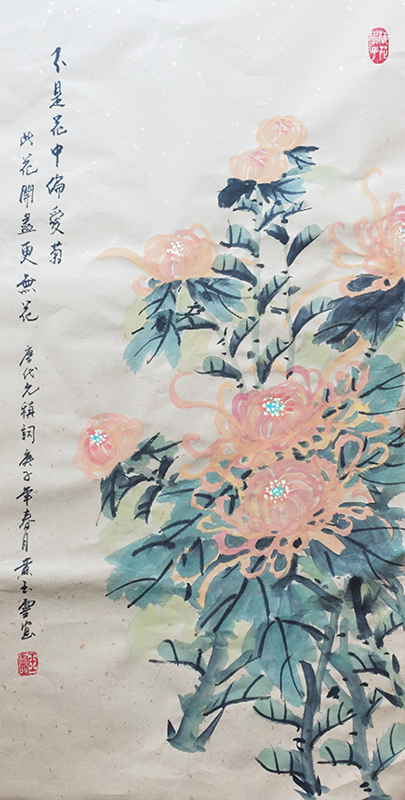 不是花中偏愛菊
此花開盡更無花 唐代元稹詞 庚子年春月